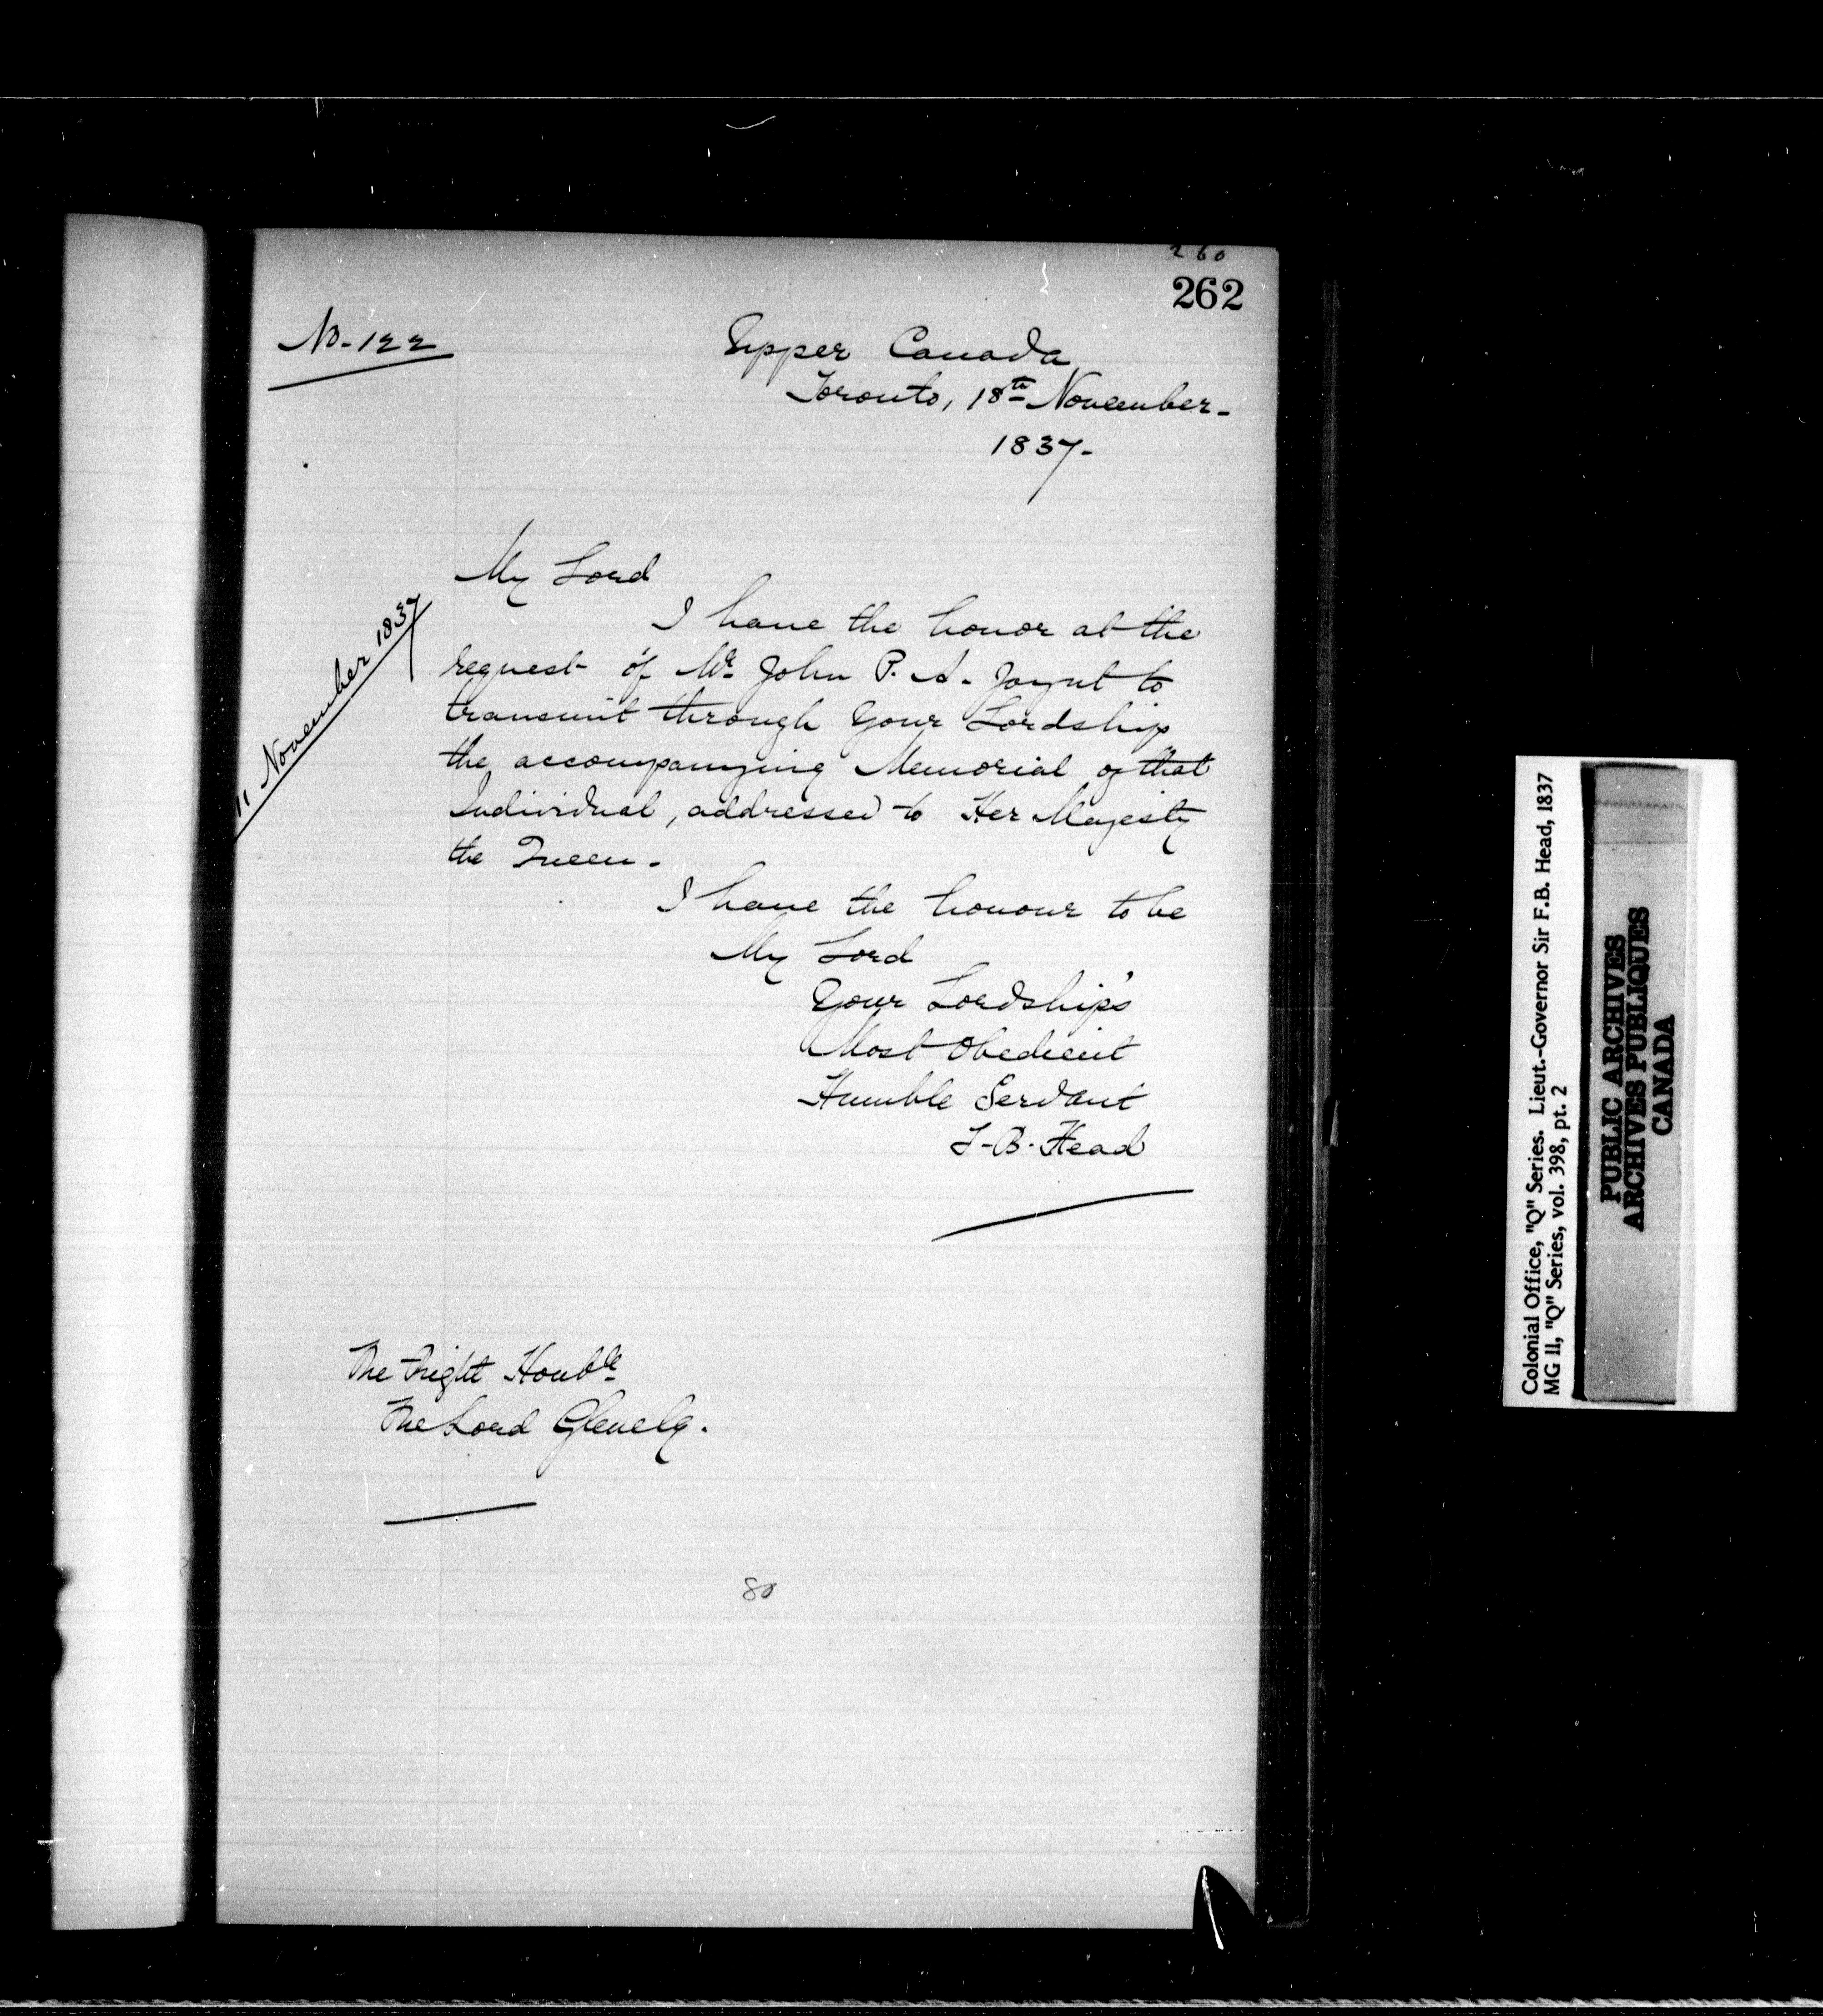 260
262
No-122
Upper Canada
Toronto, 18th November-
1837-
My Lord
11 November 1837
I have the honor at the
request of Mr John P. A. Joynt to
transmit through Your Lordship
the accompanying Memorial of that
Individual, addressed to Her Majesty
the Queen.
I have the honour to be
My Lord
Your Lordship's
Most Obedient
Humble Servant
F-B. Head
The Right Honble
The Lord Glenelg.
80
Colonial Office, "Q" Series. Lieut.-Governor Sir F.B. Head, 1837
MG 11, "Q" Series, vol. 398, pt. 2
PUBLIC ARCHIVES
ARCHIVES PUBLIQUES
CANADA